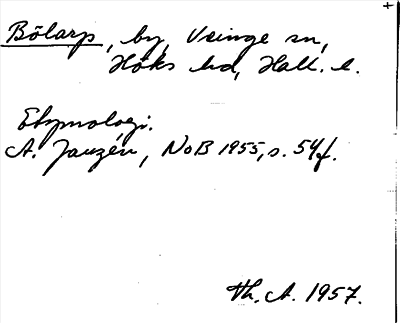 Bölarp, by, Veinge sn,
Höks hd, Hall. l.
Etymologi.
A. Janzén, NoB 1955, s. 54f.
Th. A. 1957.